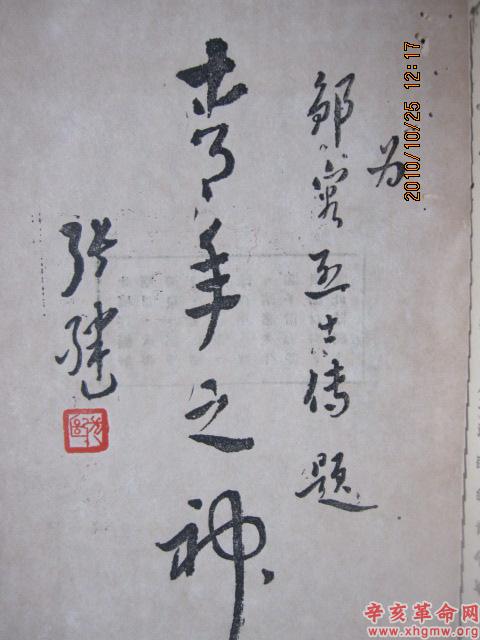 为
鄒容烈士傳題
青年之神
張繼
2010/10/25 12:17
辛亥革命网
www.xhgmw.org